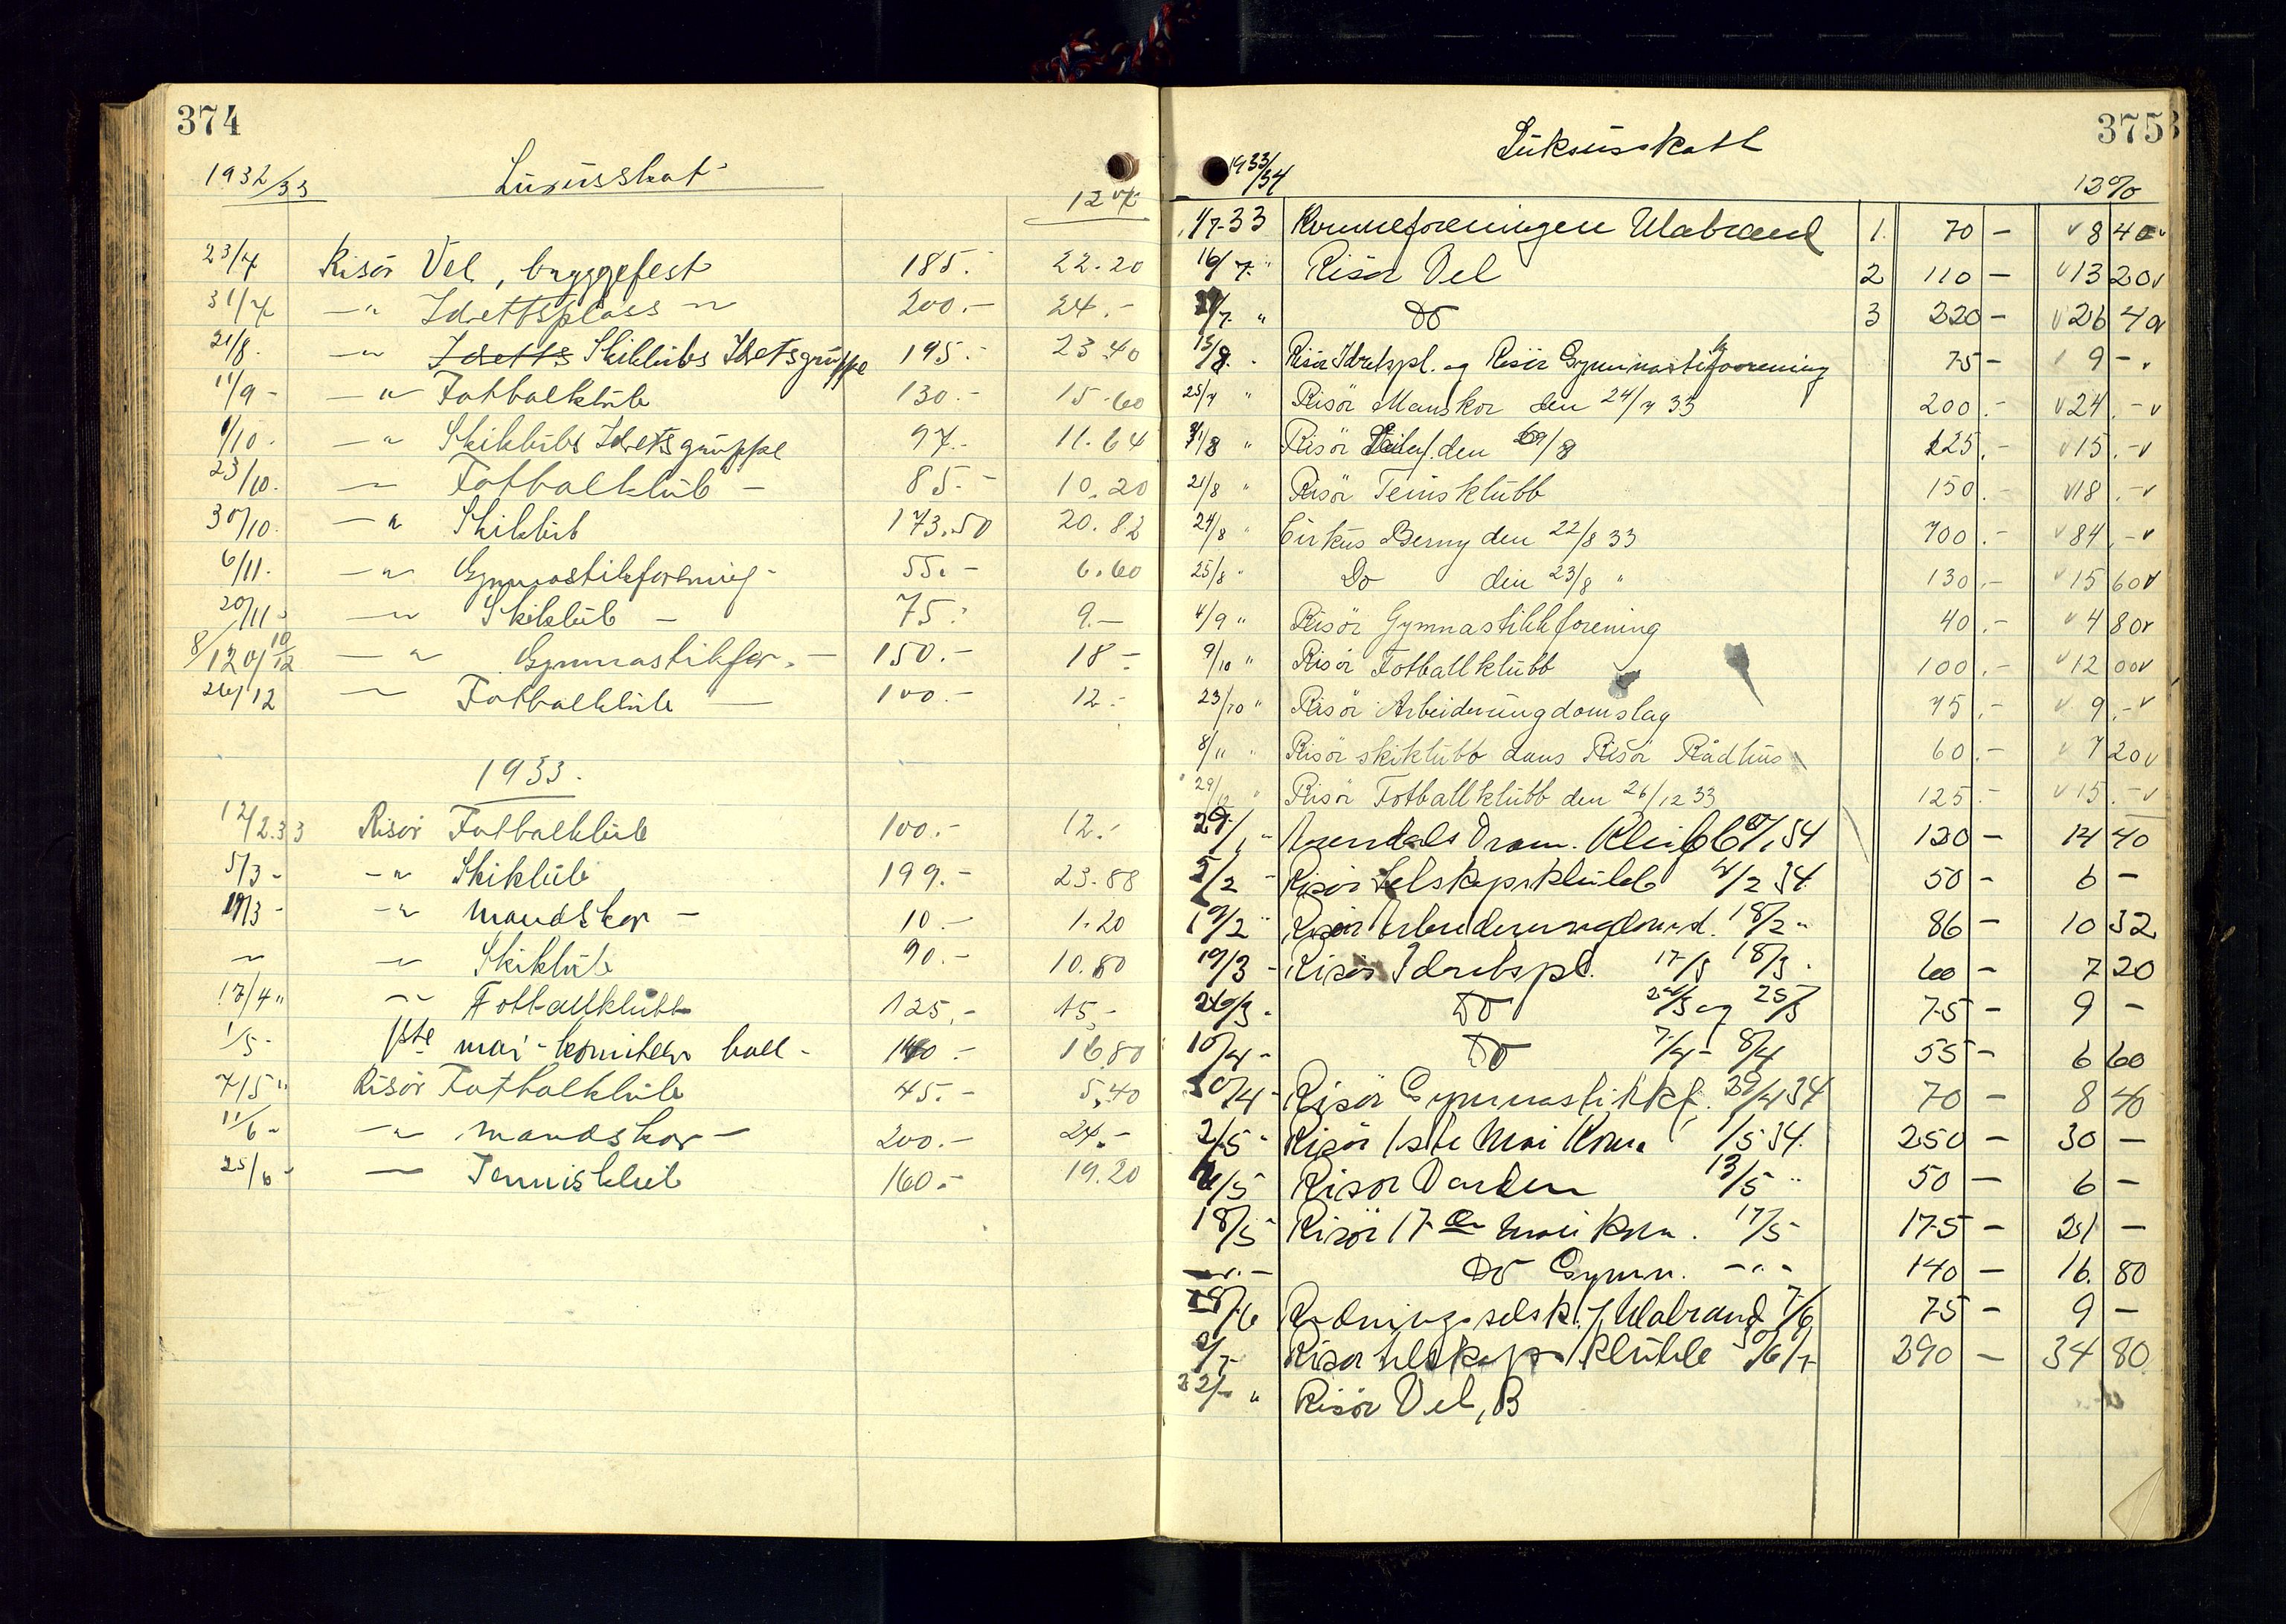 374
1932/33 Luxusskat
12%
23/7 Risör Vel, byggefest 185.- 22.20
31/7 -"- Idrettsplass -"- 200.- 24.-
21/8. -"- Idretts Skiklubs Idretsgruppe 195.- 23.40
11/9 - -"- Fotbalklub 130.- 15.60
1/10. -"- Skiklubs Idretsgruppe 97.- 11.64
23/10. -"- Fotbalklub - 85.- 10.20
30/10. -"- Skiklub 173.50 20.82
6/11. -"- Gymnastikforening - 55.- 6.60
20/11 - -"- Skiklub - 75.- 9.-
8/12 og 10/12 -"- Gymnastikfor. - 150.- 18.-
26/12 -"- Fotbalklub - 100.- 12.-
1933.
12/2.33 Risør Fotbalklub 100.- 12.-
5/3 - -"- Skiklub 199.- 23.88
19/3 - -"- Mandskor - 10.- 1.20
-"- -"- Skiklub 90.- 10.80
17/4 " -"- Fotballklubb 125.- 15.-
1/5 - 1ste mai-komiteens ball - 140.- 16.80
7/5 " Risör Fotbalklub 45.- 5.40
11/6 - -"- Mandskor - 200.- 24.-
25/6 - -"- Tennisklub 160.- 19.20
375
1933/34 Luksusskatt
12%
1/7-33 Kvinneforeningen Ulabrand 1. 70 - 8 40
16/7 " Risør Vel 2 110 - 13 20
29/7 " Do 3 220 - 26 40
13/8. Risør Idretspl. og Risör Gymnastikforening 75 - 9 -
25/7 " Risör Manskor den 24/7 33 200.- 24.-
31/8 " Risör den /8 125.- 15.-
21/8 " Risör Tennisklubb 150.- 18.-
24/8 " Cirkus Berny den 22/8 33 700.- 84.-
25/8 " Do den 23/8 " 130.- 15 60
4/9 " Risör Gymnastikkforening 40.- 4 80
9/10 " Risör Fotballklubb 100.- 12 00
23/10 " Risör Arbeiderungdomslag 75.- 9.-
8/11 " Risör skiklubb dans Risör Rådhus 60.- 7 20
29/12 " Risör Fotballklubb den 26/12 33 125.- 15.-
29/1 - Arendals Dram. Klubb /1 34 120 - 14 40
5/2 - Risör Selskapsklubb 4/2 34 50 - 6 -
19/2 " Risør Arbeiderungdomsl. 18/2 " 86 - 10 32
19/3 - Risör Idretspl. 17/3 18/3. 60 - 7 20
26/3. Do 24/3 og 25/3 75 - 9 -
10/4 - Do 7/4 - 8/4 55 - 6 60
30/4 - Risör Gymnastikkf. 29/4 34 70 - 8 40
2/5 - Risör 1ste Mai Kom. 1/5 34. 250 - 30 -
/5 Risör Varden 13/5 " 50 - 6 -
18/5 - Risör 17de mai kom. 17/5 - 175 - 21 -
-"- Do Gymn. -"- 140 - 16. 80
/6 Redningsselsk. f. Ulabrand 7/6 75 - 9 -
2/7 - Risør Selskapsklubb 30/6 1/7 290 - 34 80
22/7 " Risør Vel, B